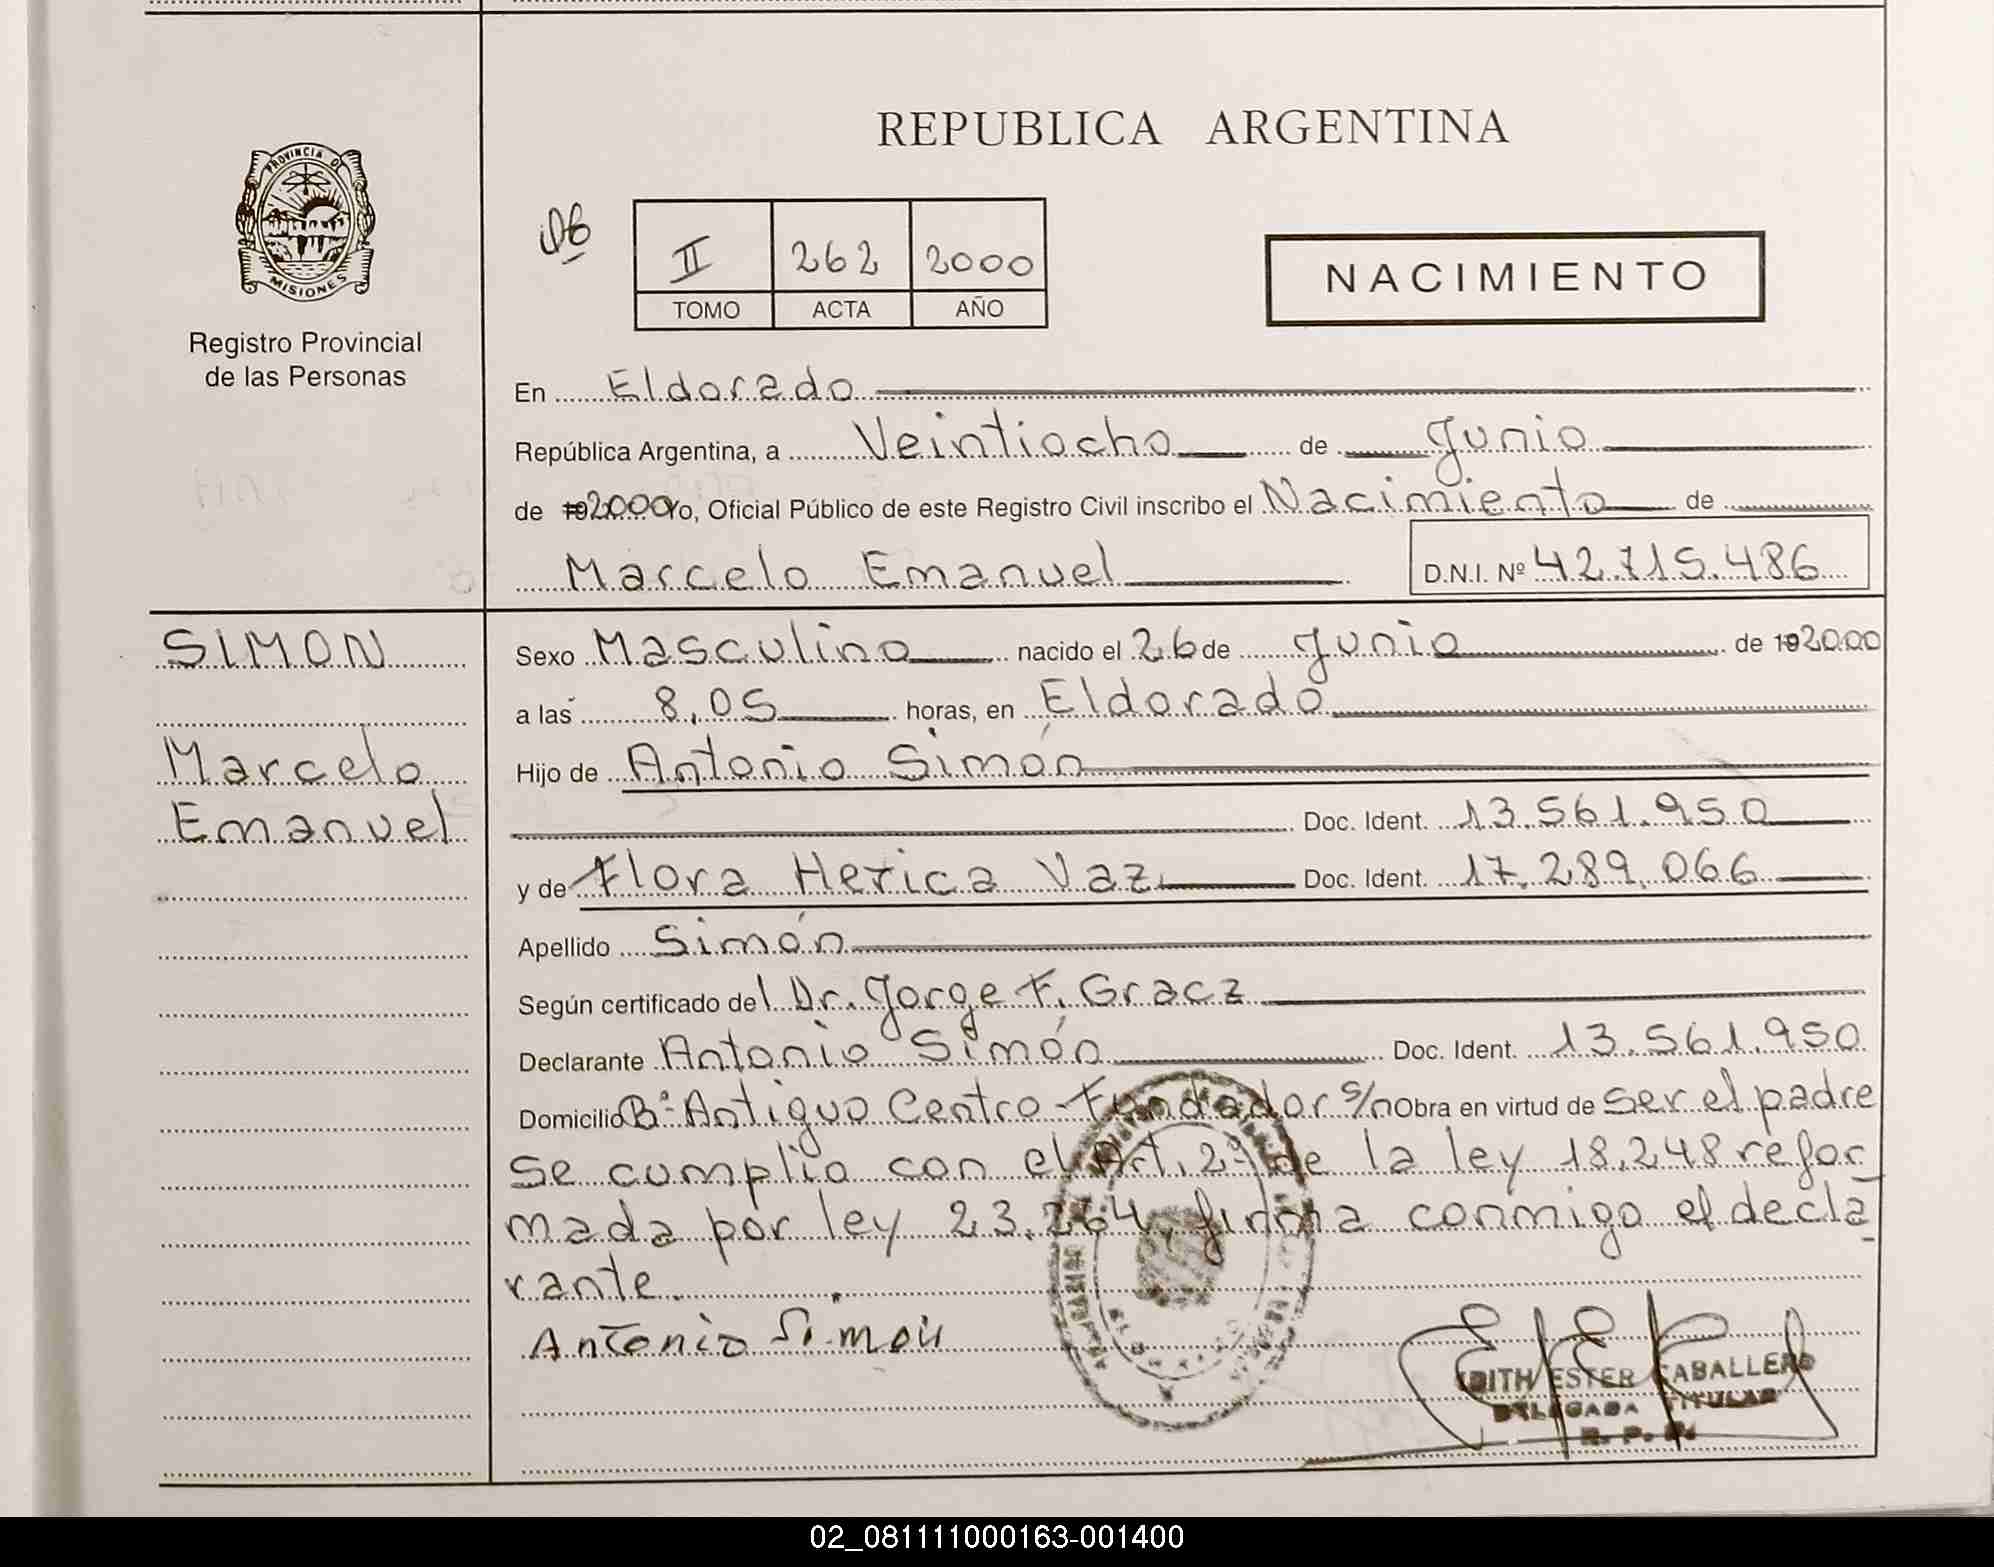 REPUBLICA ARGENTINA
PROVINCIA DE
MISIONES
Registro Provincial
de las Personas
06
II 262 2000
TOMO ACTA AÑO
NACIMIENTO
En Eldorado
República Argentina, a Veintiocho de Junio
de 19 2000 Yo, Oficial Público de este Registro Civil inscribo el Nacimiento de
Marcelo Emanuel D.N.I. Nº 42.715.486
SIMON
Marcelo
Emanuel
Sexo Masculino nacido el 26 de Junio de 19 2000
a las 8,05 horas, en Eldorado
Hijo de Antonio Simón
Doc. Ident. 13.561.950
y de Flora Herica Vaz Doc. Ident. 17.289.066
Apellido Simón
Según certificado del Dr. Jorge F. Gracz
Declarante Antonio Simón Doc. Ident. 13.561.950
Domicilio Bº Antiguo Centro Fundador s/n Obra en virtud de ser el padre
se cumplio con el Art. 2º de la ley 18.248 refor
mada por ley 23.264, firma conmigo el decla
rante.
Antonio Simon
EDITH ESTER CABALLERO
DELEGADA TITULAR
R. P. P.
02_081111000163-001400